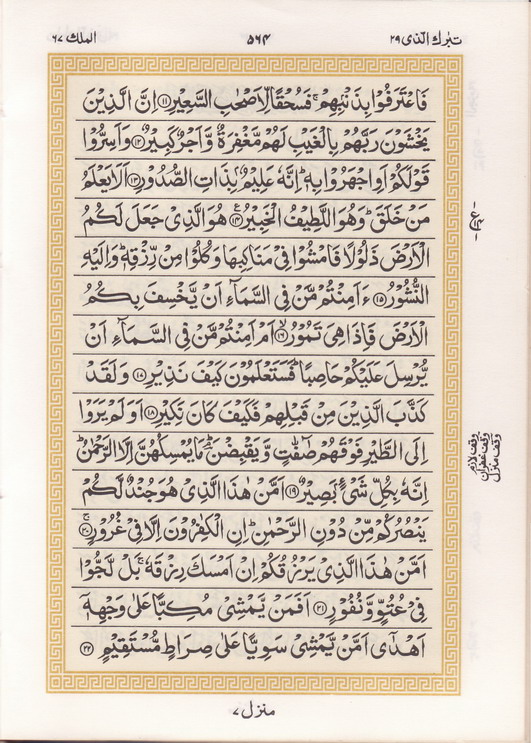 تبٰرك الذی ٢٩ ٥٦٤ الملك ٦٧
فَاعْتَرَفُوْا بِذَنْۢبِهِمْ ۚ فَسُحْقًا لِّاَصْحٰبِ السَّعِيْرِ ﴿١١﴾ اِنَّ الَّذِيْنَ
يَخْشَوْنَ رَبَّهُمْ بِالْغَيْبِ لَهُمْ مَّغْفِرَةٌ وَّاَجْرٌ كَبِيْرٌ ﴿١٢﴾ وَاَسِرُّوْا
قَوْلَكُمْ اَوِ اجْهَرُوْا بِهٖ ؕ اِنَّهٗ عَلِيْمٌۢ بِذَاتِ الصُّدُوْرِ ﴿١٣﴾ اَلَا يَعْلَمُ
مَنْ خَلَقَ ؕ وَهُوَ اللَّطِيْفُ الْخَبِيْرُ ﴿١٤﴾ هُوَ الَّذِيْ جَعَلَ لَكُمُ
الْاَرْضَ ذَلُوْلًا فَامْشُوْا فِيْ مَنَاكِبِهَا وَكُلُوْا مِنْ رِّزْقِهٖ ؕ وَاِلَيْهِ
النُّشُوْرُ ﴿١٥﴾ ءَاَمِنْتُمْ مَّنْ فِي السَّمَآءِ اَنْ يَّخْسِفَ بِكُمُ
الْاَرْضَ فَاِذَا هِيَ تَمُوْرُ ﴿١٦﴾ اَمْ اَمِنْتُمْ مَّنْ فِي السَّمَآءِ اَنْ
يُّرْسِلَ عَلَيْكُمْ حَاصِبًا ؕ فَسَتَعْلَمُوْنَ كَيْفَ نَذِيْرِ ﴿١٧﴾ وَلَقَدْ
كَذَّبَ الَّذِيْنَ مِنْ قَبْلِهِمْ فَكَيْفَ كَانَ نَكِيْرِ ﴿١٨﴾ اَوَلَمْ يَرَوْا
اِلَى الطَّيْرِ فَوْقَهُمْ صٰٓفّٰتٍ وَّيَقْبِضْنَ ؔۘ مَا يُمْسِكُهُنَّ اِلَّا الرَّحْمٰنُ ؕ
اِنَّهٗ بِكُلِّ شَيْءٍۢ بَصِيْرٌ ﴿١٩﴾ اَمَّنْ هٰذَا الَّذِيْ هُوَ جُنْدٌ لَّكُمْ
يَنْصُرُكُمْ مِّنْ دُوْنِ الرَّحْمٰنِ ؕ اِنِ الْكٰفِرُوْنَ اِلَّا فِيْ غُرُوْرٍ ﴿٢٠﴾
اَمَّنْ هٰذَا الَّذِيْ يَرْزُقُكُمْ اِنْ اَمْسَكَ رِزْقَهٗ ۚ بَلْ لَّجُّوْا
فِيْ عُتُوٍّ وَّنُفُوْرٍ ﴿٢١﴾ اَفَمَنْ يَّمْشِيْ مُكِبًّا عَلٰى وَجْهِهٖٓ
اَهْدٰٓى اَمَّنْ يَّمْشِيْ سَوِيًّا عَلٰى صِرَاطٍ مُّسْتَقِيْمٍ ﴿٢٢﴾
وقف لازم
وقف غفران
وقف منزل
منزل ٧